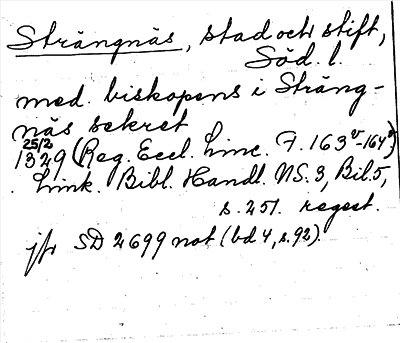 Strängnäs, stad och stift,
Söd. l.
med. biskopens i Sträng-
näs sekret
25/2
1329 (Reg. Eccl. Linc. F. 163v-164v)
Link. Bibl. Handl. NS. 3, Bil. 5,
s. 251. regest.
jfr SD 2699 not (bd 4, s. 92).